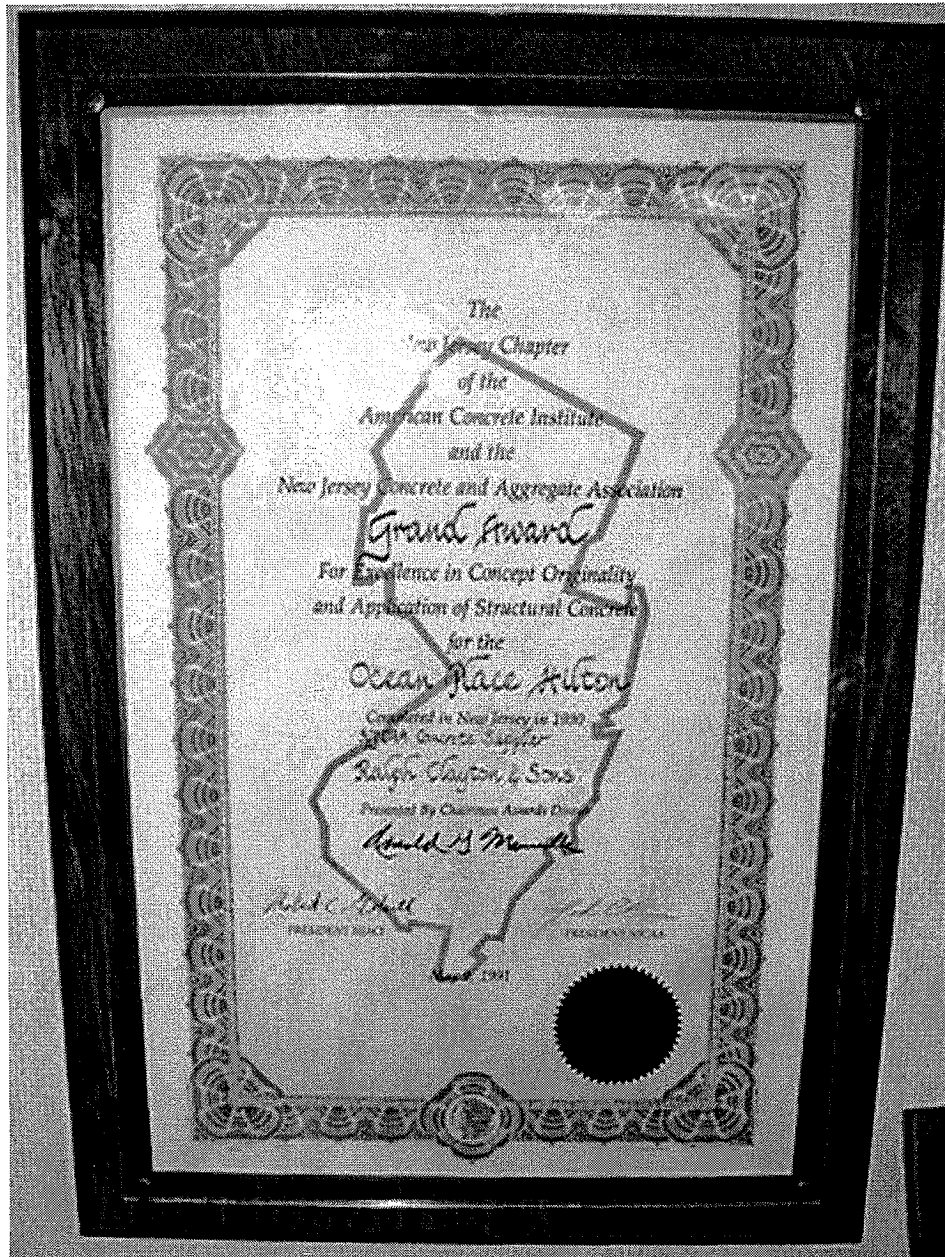 The
New Jersey Chapter
of the
American Concrete Institute
and the
New Jersey Concrete and Aggregate Association
Grand Award
For Excellence in Concept Originality
and Application of Structural Concrete
for the
Ocean Place Hilton
Completed in New Jersey in 1990
Concrete Supplier
Ralph Clayton & Sons
Presented By Chairman Awards
PRESIDENT NJACI
PRESIDENT NJCAA
1991